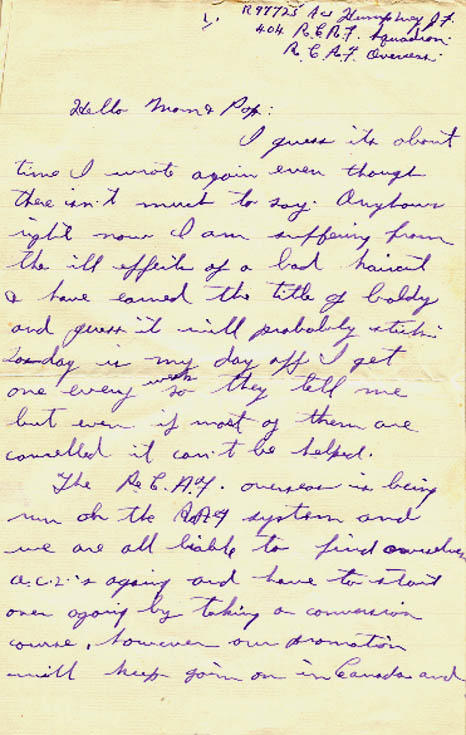 1. R97725 Ac1 Humphrey J.F.
404 R.C.A.F. Squadron.
R.C.A.F. Overseas.
Hello Mom & Pop:
I guess its about
time I wrote again even though
there isn't much to say. Anyhow
right now I am suffering from
the ill effects of a bad haircut
& have earned the title of baldy
and guess it will probably stick.
day is my day off I get
one every week so they tell me
but even if most of them are
cancelled it can't be helped.
The R.C.A.F. overseas is being
run on the R.A.F system and
we are all liable to find ourselves
a.c.2.'s again and have to start
over again by taking a conversion
course, however our promotion
will keep goin on in Canada and